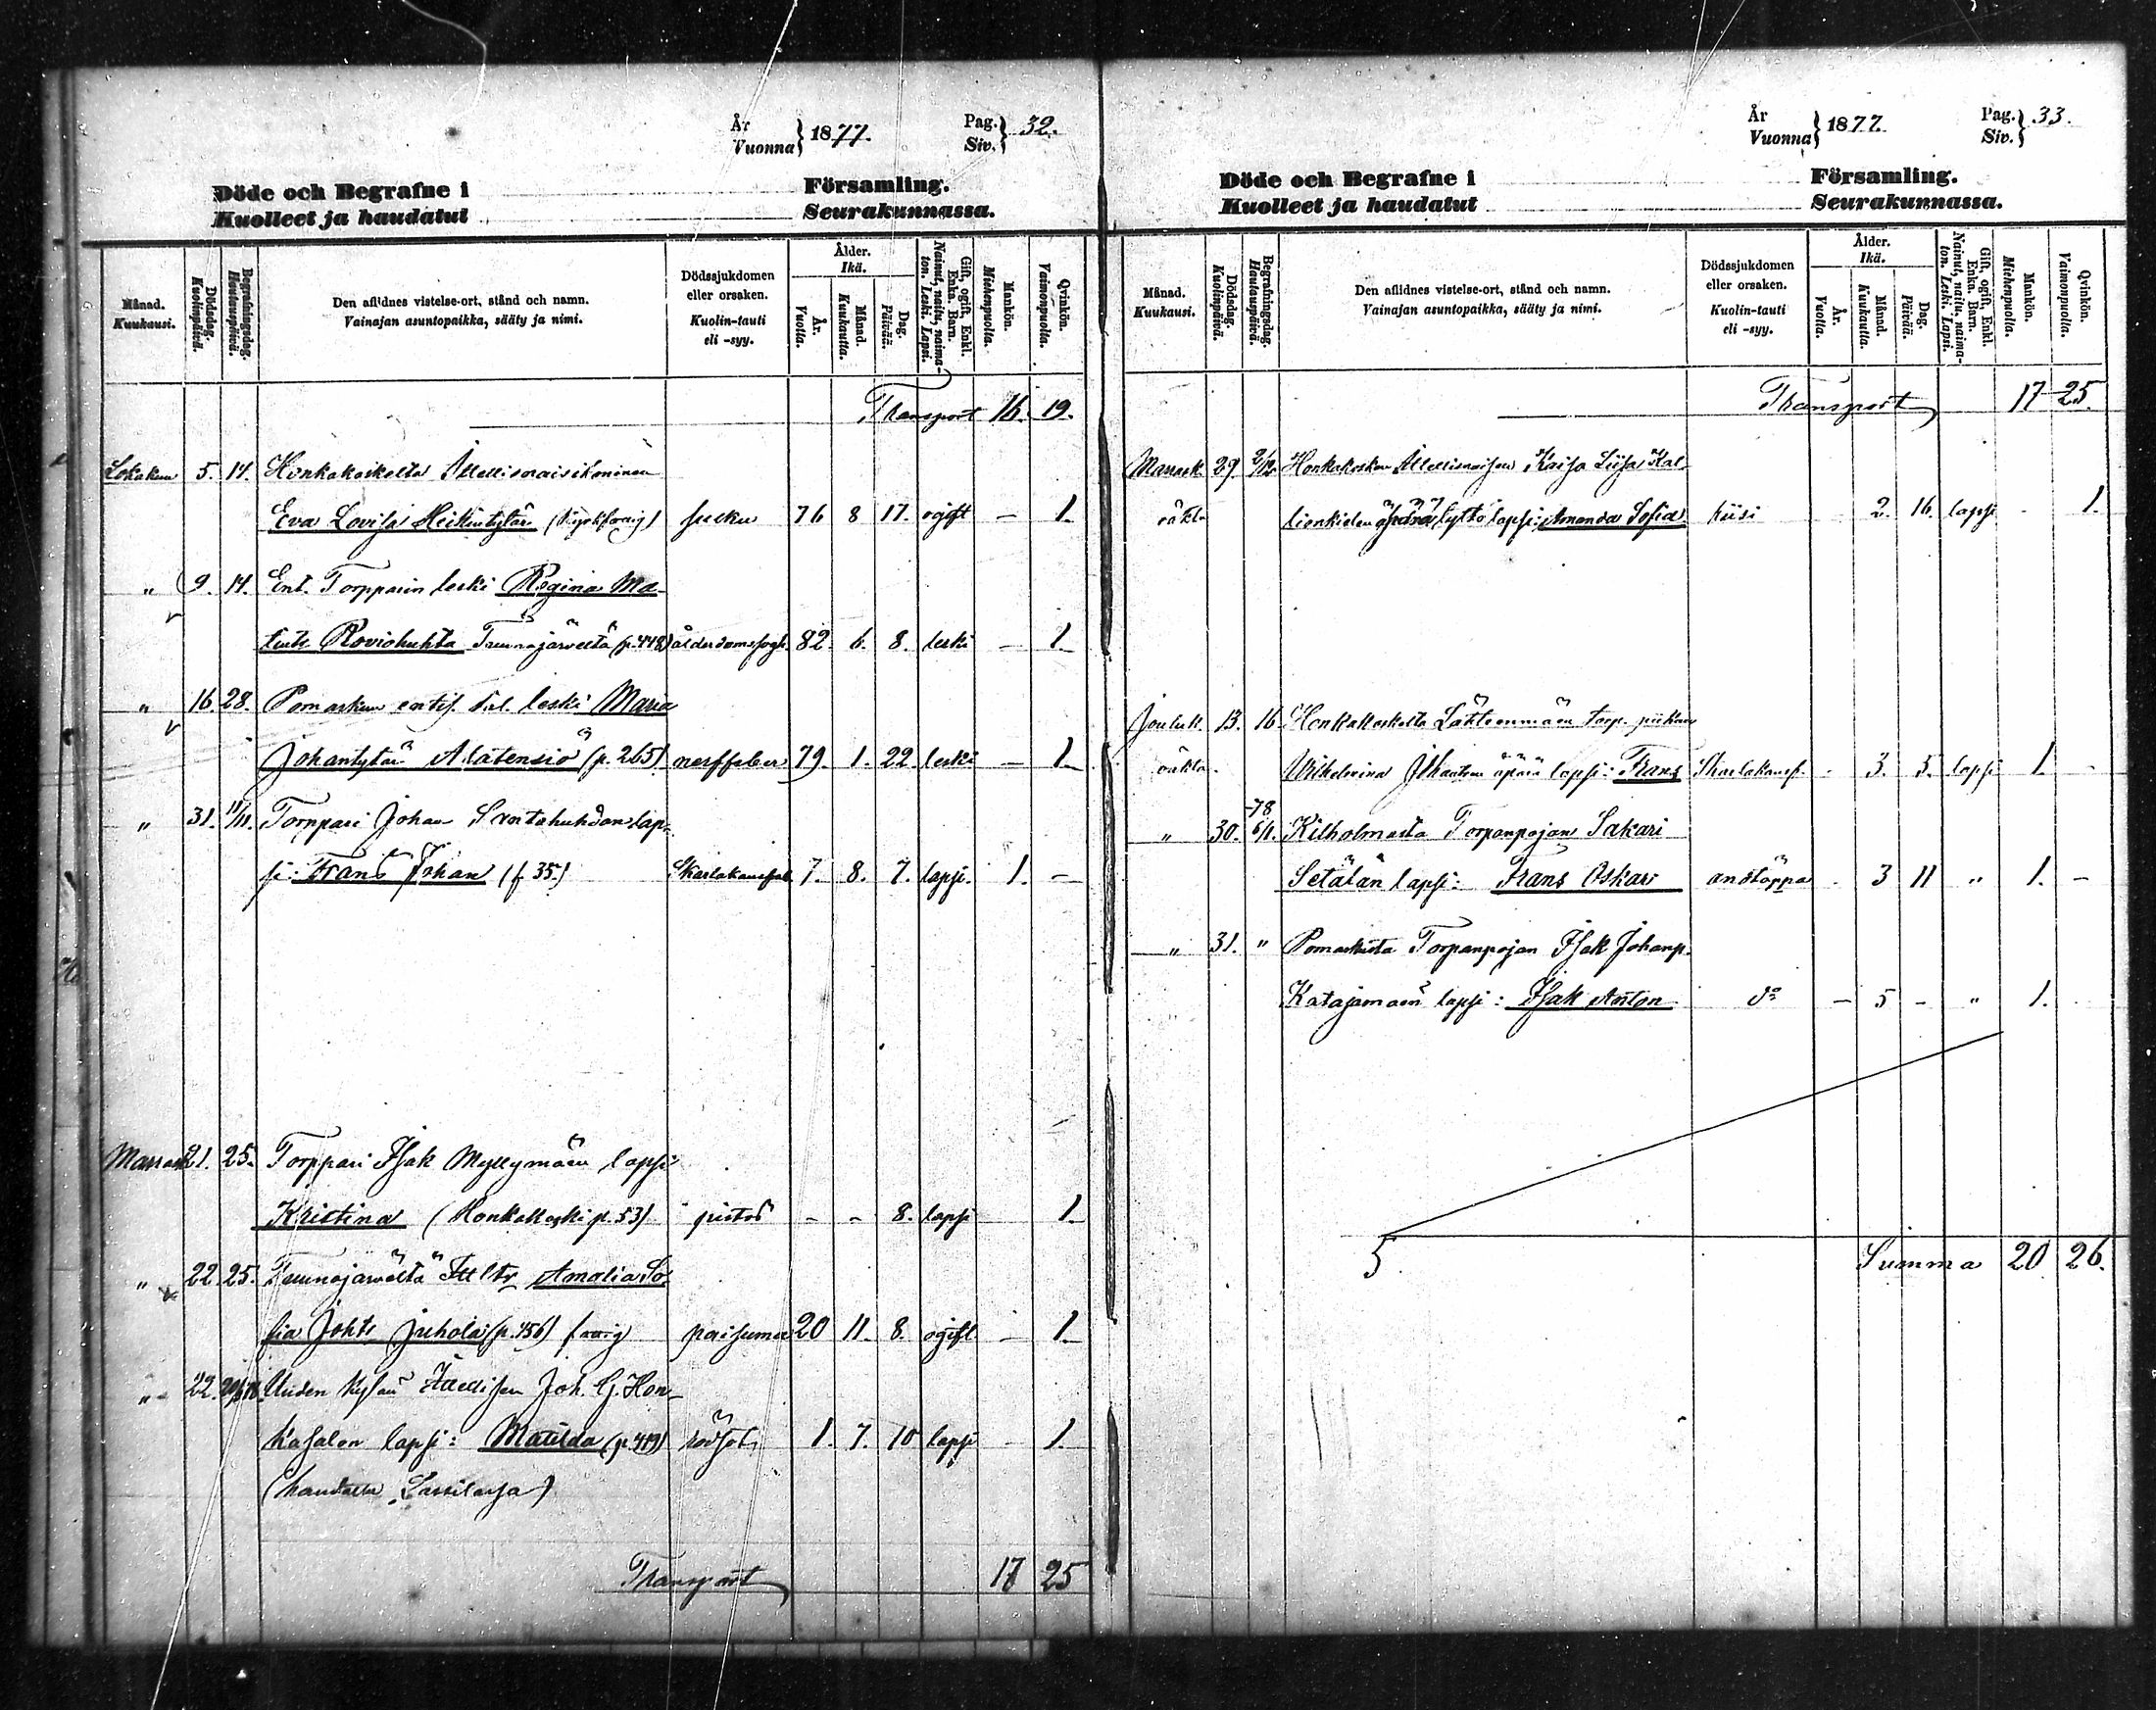 År
Vuonna } 1877. Pag.
Siv. } 32.
Döde och Begrafne i Församling.
Kuolleet ja haudatut Seurakunnassa.
Månad. Kuukausi. Dödsdag. Kuolinpäivä. Begrafningsdag. Hautauspäivä. Den aflidnes vistelse-ort, stånd och namn. Vainajan asuntopaikka, sääty ja nimi. Dödssjukdomen eller orsaken. Kuolin-tauti eli -syy. Ålder. Ikä. År. Vuotta. Månad. Kuukautta. Dag. Päivää. Gift, ogift, Enkl. Enka. Barn. Nainut, naitu, naimaton. Leski. Lapsi. Mankön. Miehenpuolia. Qvinkön. Vaimonpuolia.
Transport 16. 19.
Lokakuu 5. 14. Honkakoskelta
Eva Lovisa Heikintytär 76 8 17. ogift — 1.
" 9. 14. Ent. Torpparin leski Regina Ma-
tints Roviohuhta (p. 448) ålderdomssvagh. 82. 6. 8. leski — 1.
" 16. 28. Pomarkun leski Maria
Johantytär Alatensiö (p. 265) nerffeber 79. 1. 22. leski — 1.
" 31. 11/11. Torppari Johan Santahuhdan lap-
si: Frans Johan (f. 35.) Skarlakansfeb. 7. 8. 7. lapsi. 1. —
Marrask. 21. 25. Torppari Isak Myllymäen lapsi
Kristina (Honkakoski p. 53) pistos — — 8. lapsi 1.
" 22. 25. Amalia So-
fia Johts Juhola (p. 456) paisuma 20 11. 8. ogift — 1.
" 22. Uuden kylän Joh. G. Hon-
kasalon lapsi: Matilda (p. 419) rödsot 1. 7. 10 lapsi — 1.
(haudattu Lassilassa)
Transport 17 25
År
Vuonna } 1877. Pag.
Siv. } 33.
Döde och Begrafne i Församling.
Kuolleet ja haudatut Seurakunnassa.
Månad. Kuukausi. Dödsdag. Kuolinpäivä. Begrafningsdag. Hautauspäivä. Den aflidnes vistelse-ort, stånd och namn. Vainajan asuntopaikka, sääty ja nimi. Dödssjukdomen eller orsaken. Kuolin-tauti eli -syy. Ålder. Ikä. År. Vuotta. Månad. Kuukautta. Dag. Päivää. Gift, ogift, Enkl. Enka. Barn. Nainut, naitu, naimaton. Leski. Lapsi. Mankön. Miehenpuolia. Qvinkön. Vaimonpuolia.
Transport 17 25.
Marrask. 29. 2/12. Honkakosken Itellisnaisen Kaisa Liisa Kal-
oäkta lionkielen lapsi: Amanda Sofia hiisi 2. 16. lapsi 1.
Jouluk. 13. 16. Honkakoskelta Lähteenmäen torp. piikan
oäkta. Wilhelmina äpärä lapsi: Frans Skarlakansf. - 3. 5. lapsi 1. -
" 30. -78 6/1. Kilholmasta Torpanpojan Sakari
Setälän lapsi: Frans Oskari andtäppa - 3 11 " 1. -
" 31. " Pomarkusta Torpanpojan Isak Johanp.
Katajamäen lapsi: Isak Anton do — 5 - " 1.
5 Summa 20 26.